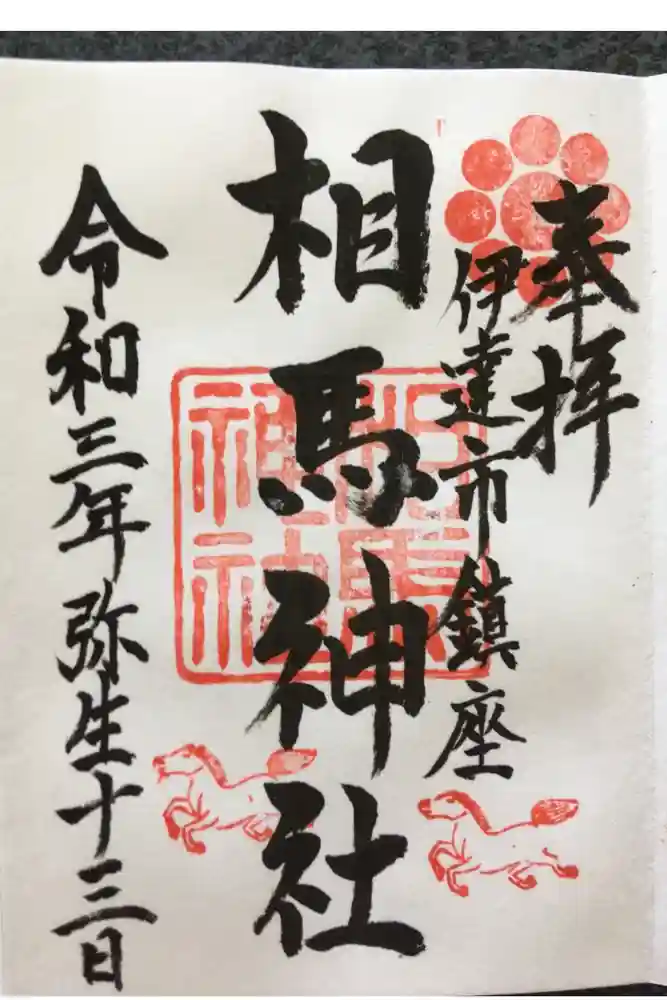 奉拝
伊達市鎮座
相馬神社
相馬神社
令和三年弥生十三日